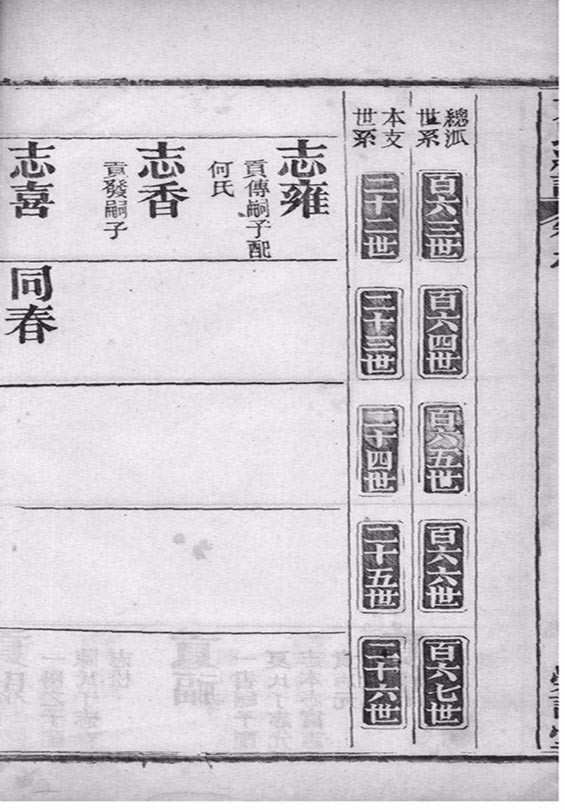 總派
世系
百六三世
百六四世
百六五世
百六六世
百六七世
本支
世系
二十二世
二十三世
二十四世
二十五世
二十六世
志雍
貢傳嗣子配
何氏
志香
貢發嗣子
志喜
同春